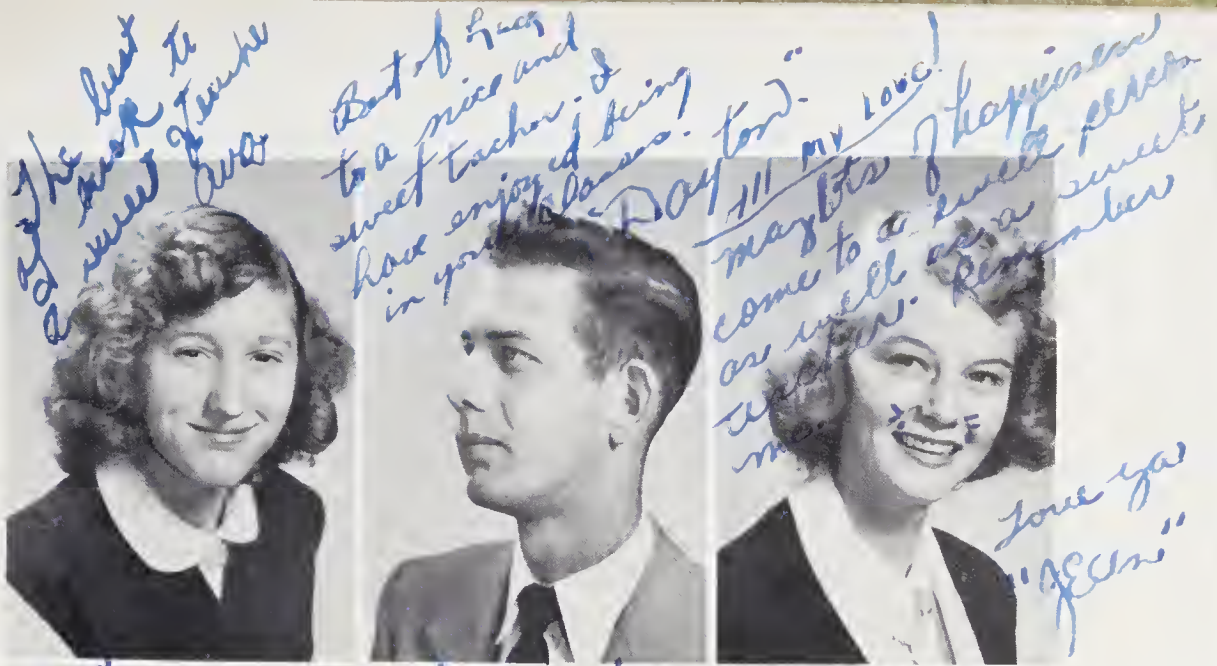 The best
of luck to
a sweet Teacher
Ava
Best of Luck
to a nice and
sweet teacher. I
have enjoyed being
in your classes.
"Dayton."
All My Love!
May lots of happiness
come to a swell person
as well as a sweet
teacher. Remember
me.
Love ya
"Jean"